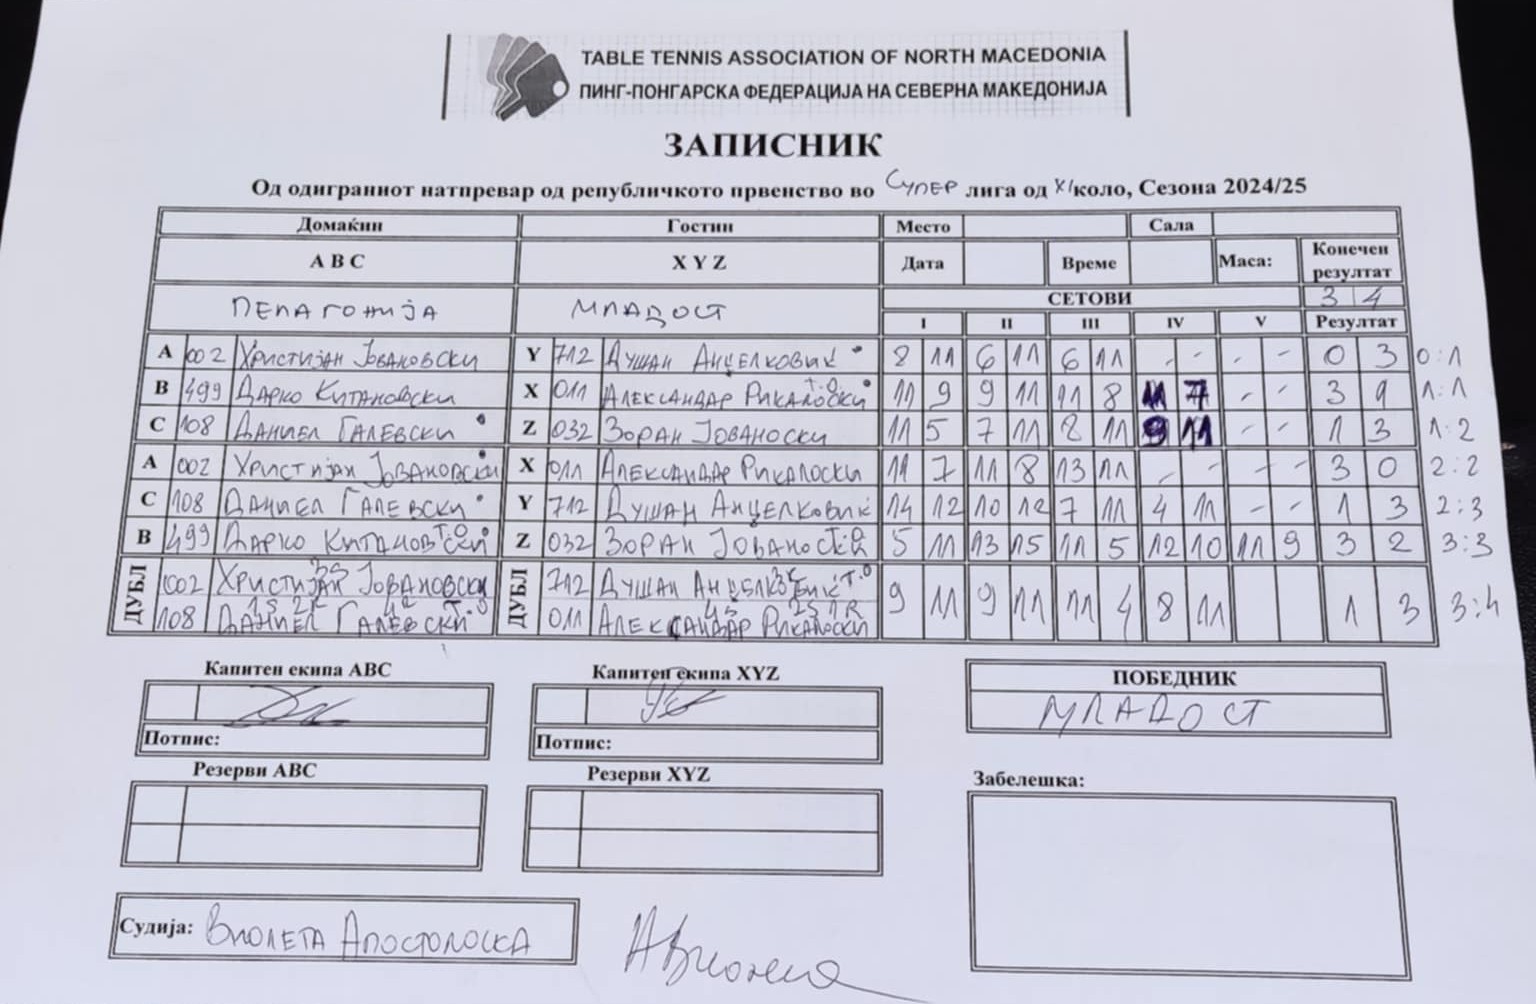 TABLE TENNIS ASSOCIATION OF NORTH MACEDONIA
ПИНГ-ПОНГАРСКА ФЕДЕРАЦИЈА НА СЕВЕРНА МАКЕДОНИЈА
ЗАПИСНИК
Од одиграниот натпревар од републичкото првенство во СУПЕР лига од XI коло, Сезона 2024/25
Домаќин Гостин Место Сала
A B C X Y Z Дата Време Маса: Конечен резултат
ПЕЛАГОНИЈА МЛАДОСТ СЕТОВИ 3 4
I II III IV V Резултат
A 002 ХРИСТИЈАН ЈОВАНОВСКИ Y 712 ДУШАН АНЏЕЛКОВИЌ 8 11 6 11 6 11 - - - - 0 3 0:1
B 499 ДАРКО КИТАНОВСКИ X 011 АЛЕКСАНДАР РИКАЛОСКИ T.O. 11 9 9 11 11 8 11 7 - - 3 1 1:1
C 108 ДАНИЕЛ ГАЛЕВСКИ Z 032 ЗОРАН ЈОВАНОСКИ 11 5 7 11 8 11 9 11 - - 1 3 1:2
A 002 ХРИСТИЈАН ЈОВАНОВСКИ X 011 АЛЕКСАНДАР РИКАЛОСКИ 11 7 11 8 13 11 - - - - 3 0 2:2
C 108 ДАНИЕЛ ГАЛЕВСКИ Y 712 ДУШАН АНЏЕЛКОВИЌ 14 12 10 12 7 11 4 11 - - 1 3 2:3
B 499 ДАРКО КИТАНОВСКИ T.O. Z 032 ЗОРАН ЈОВАНОСКИ 5 11 13 15 11 5 12 10 11 9 3 2 3:3
ДУБЛ 002 ХРИСТИЈАН ЈОВАНОВСКИ ДУБЛ 712 ДУШАН АНЏЕЛКОВИЌ T.O 9 11 9 11 11 4 8 11 1 3 3:4
108 ДАНИЕЛ ГАЛЕВСКИ T.O 011 АЛЕКСАНДАР РИКАЛОСКИ
Капитен екипа ABC Капитен екипа XYZ ПОБЕДНИК
МЛАДОСТ
Потпис: Потпис:
Резерви ABC Резерви XYZ Забелешка:
Судија: ВИОЛЕТА АПОСТОЛОСКА